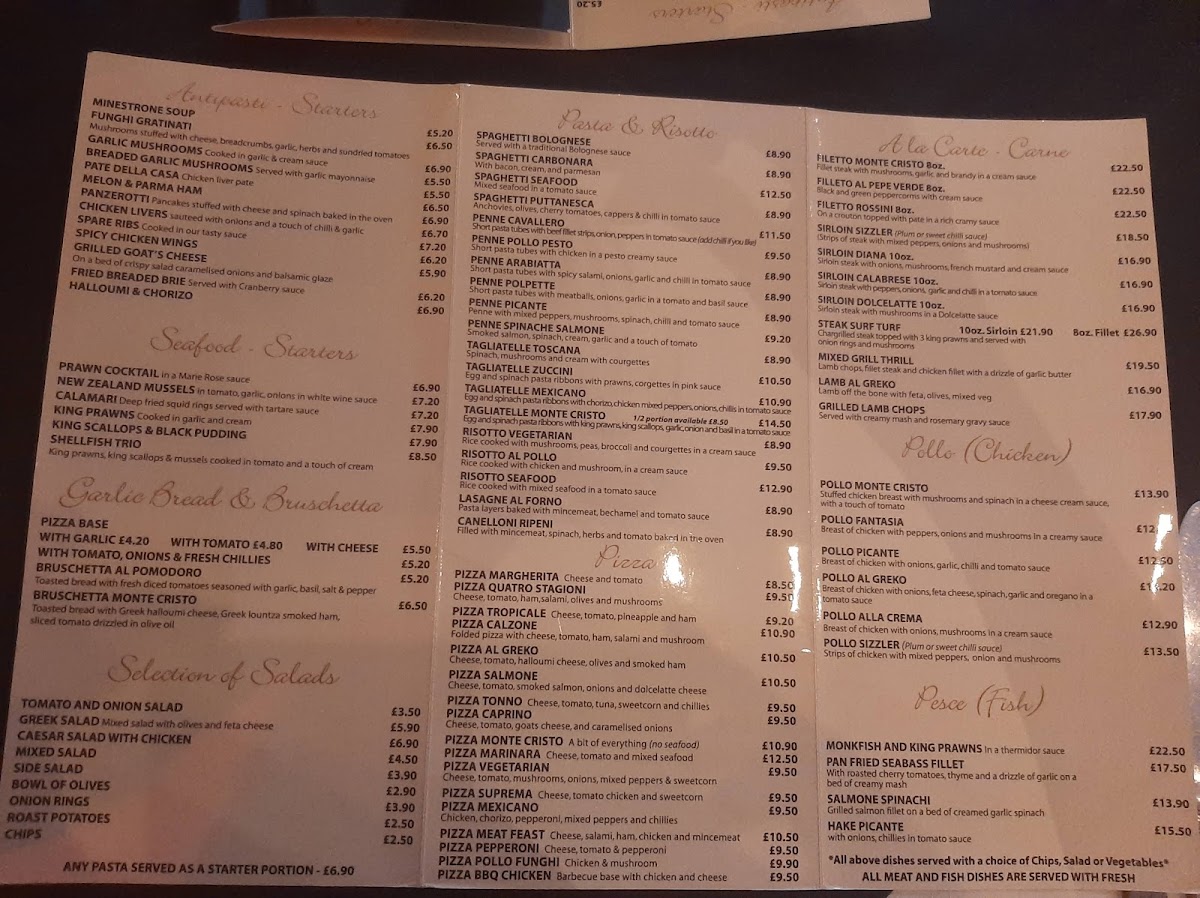 £5.20
Antipasti - Starters
Antipasti - Starters
MINESTRONE SOUP £5.20
FUNGHI GRATINATI £6.50
Mushrooms stuffed with cheese, breadcrumbs, garlic, herbs and sundried tomatoes
GARLIC MUSHROOMS Cooked in garlic & cream sauce £6.90
BREADED GARLIC MUSHROOMS Served with garlic mayonnaise £5.50
PATE DELLA CASA Chicken liver pate £5.50
MELON & PARMA HAM £6.50
PANZEROTTI Pancakes stuffed with cheese and spinach baked in the oven £6.90
CHICKEN LIVERS sauteed with onions and a touch of chilli & garlic £6.70
SPARE RIBS Cooked in our tasty sauce £7.20
SPICY CHICKEN WINGS £6.20
GRILLED GOAT'S CHEESE £5.90
On a bed of crispy salad caramelised onions and balsamic glaze
FRIED BREADED BRIE Served with Cranberry sauce £6.20
HALLOUMI & CHORIZO £6.90
Seafood - Starters
PRAWN COCKTAIL in a Marie Rose sauce £6.90
NEW ZEALAND MUSSELS in tomato, garlic, onions in white wine sauce £7.20
CALAMARI Deep fried squid rings served with tartare sauce £7.20
KING PRAWNS Cooked in garlic and cream £7.90
KING SCALLOPS & BLACK PUDDING £7.90
SHELLFISH TRIO £8.50
King prawns, king scallops & mussels cooked in tomato and a touch of cream
Garlic Bread & Bruschetta
PIZZA BASE
WITH GARLIC £4.20 WITH TOMATO £4.80 WITH CHEESE £5.50
WITH TOMATO, ONIONS & FRESH CHILLIES £5.20
BRUSCHETTA AL POMODORO £5.20
Toasted bread with fresh diced tomatoes seasoned with garlic, basil, salt & pepper
BRUSCHETTA MONTE CRISTO £6.50
Toasted bread with Greek halloumi cheese, Greek lountza smoked ham,
sliced tomato drizzled in olive oil
Selection of Salads
TOMATO AND ONION SALAD £3.50
GREEK SALAD Mixed salad with olives and feta cheese £5.90
CAESAR SALAD WITH CHICKEN £6.90
MIXED SALAD £4.50
SIDE SALAD £3.90
BOWL OF OLIVES £2.90
ONION RINGS £3.90
ROAST POTATOES £2.50
CHIPS £2.50
ANY PASTA SERVED AS A STARTER PORTION - £6.90
Pasta & Risotto
SPAGHETTI BOLOGNESE £8.90
Served with a traditional Bolognese sauce
SPAGHETTI CARBONARA £8.90
With bacon, cream, and parmesan
SPAGHETTI SEAFOOD £12.50
Mixed seafood in a tomato sauce
SPAGHETTI PUTTANESCA £8.90
Anchovies, olives, cherry tomatoes, cappers & chilli in tomato sauce
PENNE CAVALLERO £11.50
Short pasta tubes with beef fillet strips, onion, peppers in tomato sauce (add chilli if you like)
PENNE POLLO PESTO £9.50
Short pasta tubes with chicken in a pesto creamy sauce
PENNE ARABIATTA £8.90
Short pasta tubes with spicy salami, onions, garlic and chilli in tomato sauce
PENNE POLPETTE £8.90
Short pasta tubes with meatballs, onions, garlic in a tomato and basil sauce
PENNE PICANTE £8.90
Penne with mixed peppers, mushrooms, spinach, chilli and tomato sauce
PENNE SPINACHE SALMONE £9.20
Smoked salmon, spinach, cream, garlic and a touch of tomato
TAGLIATELLE TOSCANA £8.90
Spinach, mushrooms and cream with courgettes
TAGLIATELLE ZUCCINI £10.50
Egg and spinach pasta ribbons with prawns, corgettes in pink sauce
TAGLIATELLE MEXICANO £10.90
Egg and spinach pasta ribbons with chorizo, chicken mixed peppers, onions, chillis in tomato sauce
TAGLIATELLE MONTE CRISTO 1/2 portion available £8.50 £14.50
Egg and spinach pasta ribbons with king prawns, king scallops, garlic, onion and basil in a tomato sauce
RISOTTO VEGETARIAN £8.90
Rice cooked with mushrooms, peas, broccoli and courgettes in a cream sauce
RISOTTO AL POLLO £9.50
Rice cooked with chicken and mushroom, in a cream sauce
RISOTTO SEAFOOD £12.90
Rice cooked with mixed seafood in a tomato sauce
LASAGNE AL FORNO £8.90
Pasta layers baked with mincemeat, bechamel and tomato sauce
CANELLONI RIPENI £8.90
Filled with mincemeat, spinach, herbs and tomato baked in the oven
Pizza
PIZZA MARGHERITA Cheese and tomato £8.50
PIZZA QUATRO STAGIONI £9.50
Cheese, tomato, ham, salami, olives and mushrooms
PIZZA TROPICALE Cheese, tomato, pineapple and ham £9.20
PIZZA CALZONE £10.90
Folded pizza with cheese, tomato, ham, salami and mushroom
PIZZA AL GREKO £10.50
Cheese, tomato, halloumi cheese, olives and smoked ham
PIZZA SALMONE £10.50
Cheese, tomato, smoked salmon, onions and dolcelatte cheese
PIZZA TONNO Cheese, tomato, tuna, sweetcorn and chillies £9.50
PIZZA CAPRINO £9.50
Cheese, tomato, goats cheese, and caramelised onions
PIZZA MONTE CRISTO A bit of everything (no seafood) £10.90
PIZZA MARINARA Cheese, tomato and mixed seafood £12.50
PIZZA VEGETARIAN £9.50
Cheese, tomato, mushrooms, onions, mixed peppers & sweetcorn
PIZZA SUPREMA Cheese, tomato chicken and sweetcorn £9.50
PIZZA MEXICANO £9.50
Chicken, chorizo, pepperoni, mixed peppers and chillies
PIZZA MEAT FEAST Cheese, salami, ham, chicken and mincemeat £10.50
PIZZA PEPPERONI Cheese, tomato & pepperoni £9.50
PIZZA POLLO FUNGHI Chicken & mushroom £9.90
PIZZA BBQ CHICKEN Barbecue base with chicken and cheese £9.50
A la Carte - Carne
FILETTO MONTE CRISTO 8oz. £22.50
Fillet steak with mushrooms, garlic and brandy in a cream sauce
FILLETO AL PEPE VERDE 8oz. £22.50
Black and green peppercorns with cream sauce
FILETTO ROSSINI 8oz. £22.50
On a crouton topped with pate in a rich cramy sauce
SIRLOIN SIZZLER (Plum or sweet chilli sauce) £18.50
(Strips of steak with mixed peppers, onions and mushrooms)
SIRLOIN DIANA 10oz. £16.90
Sirloin steak with onions, mushrooms, french mustard and cream sauce
SIRLOIN CALABRESE 10oz. £16.90
Sirloin steak with peppers, onions, garlic and chilli in a tomato sauce
SIRLOIN DOLCELATTE 10oz. £16.90
Sirloin steak with mushrooms in a Dolcelatte sauce
STEAK SURF TURF 10oz. Sirloin £21.90 8oz. Fillet £26.90
Chargrilled steak topped with 3 king prawns and served with
onion rings and mushrooms
MIXED GRILL THRILL £19.50
Lamb chops, fillet steak and chicken fillet with a drizzle of garlic butter
LAMB AL GREKO £16.90
Lamb off the bone with feta, olives, mixed veg
GRILLED LAMB CHOPS £17.90
Served with creamy mash and rosemary gravy sauce
Pollo (Chicken)
POLLO MONTE CRISTO £13.90
Stuffed chicken breast with mushrooms and spinach in a cheese cream sauce,
with a touch of tomato
POLLO FANTASIA
Breast of chicken with peppers, onions and mushrooms in a creamy sauce
POLLO PICANTE £12.50
Breast of chicken with onions, garlic, chilli and tomato sauce
POLLO AL GREKO
Breast of chicken with onions, feta cheese, spinach, garlic and oregano in a
tomato sauce
POLLO ALLA CREMA £12.90
Breast of chicken with onions, mushrooms in a cream sauce
POLLO SIZZLER (Plum or sweet chilli sauce) £13.50
Strips of chicken with mixed peppers, onion and mushrooms
Pesce (Fish)
MONKFISH AND KING PRAWNS In a thermidor sauce £22.50
PAN FRIED SEABASS FILLET £17.50
With roasted cherry tomatoes, thyme and a drizzle of garlic on a
bed of creamy mash
SALMONE SPINACHI £13.90
Grilled salmon fillet on a bed of creamed garlic spinach
HAKE PICANTE £15.50
with onions, chillies in tomato sauce
*All above dishes served with a choice of Chips, Salad or Vegetables*
ALL MEAT AND FISH DISHES ARE SERVED WITH FRESH